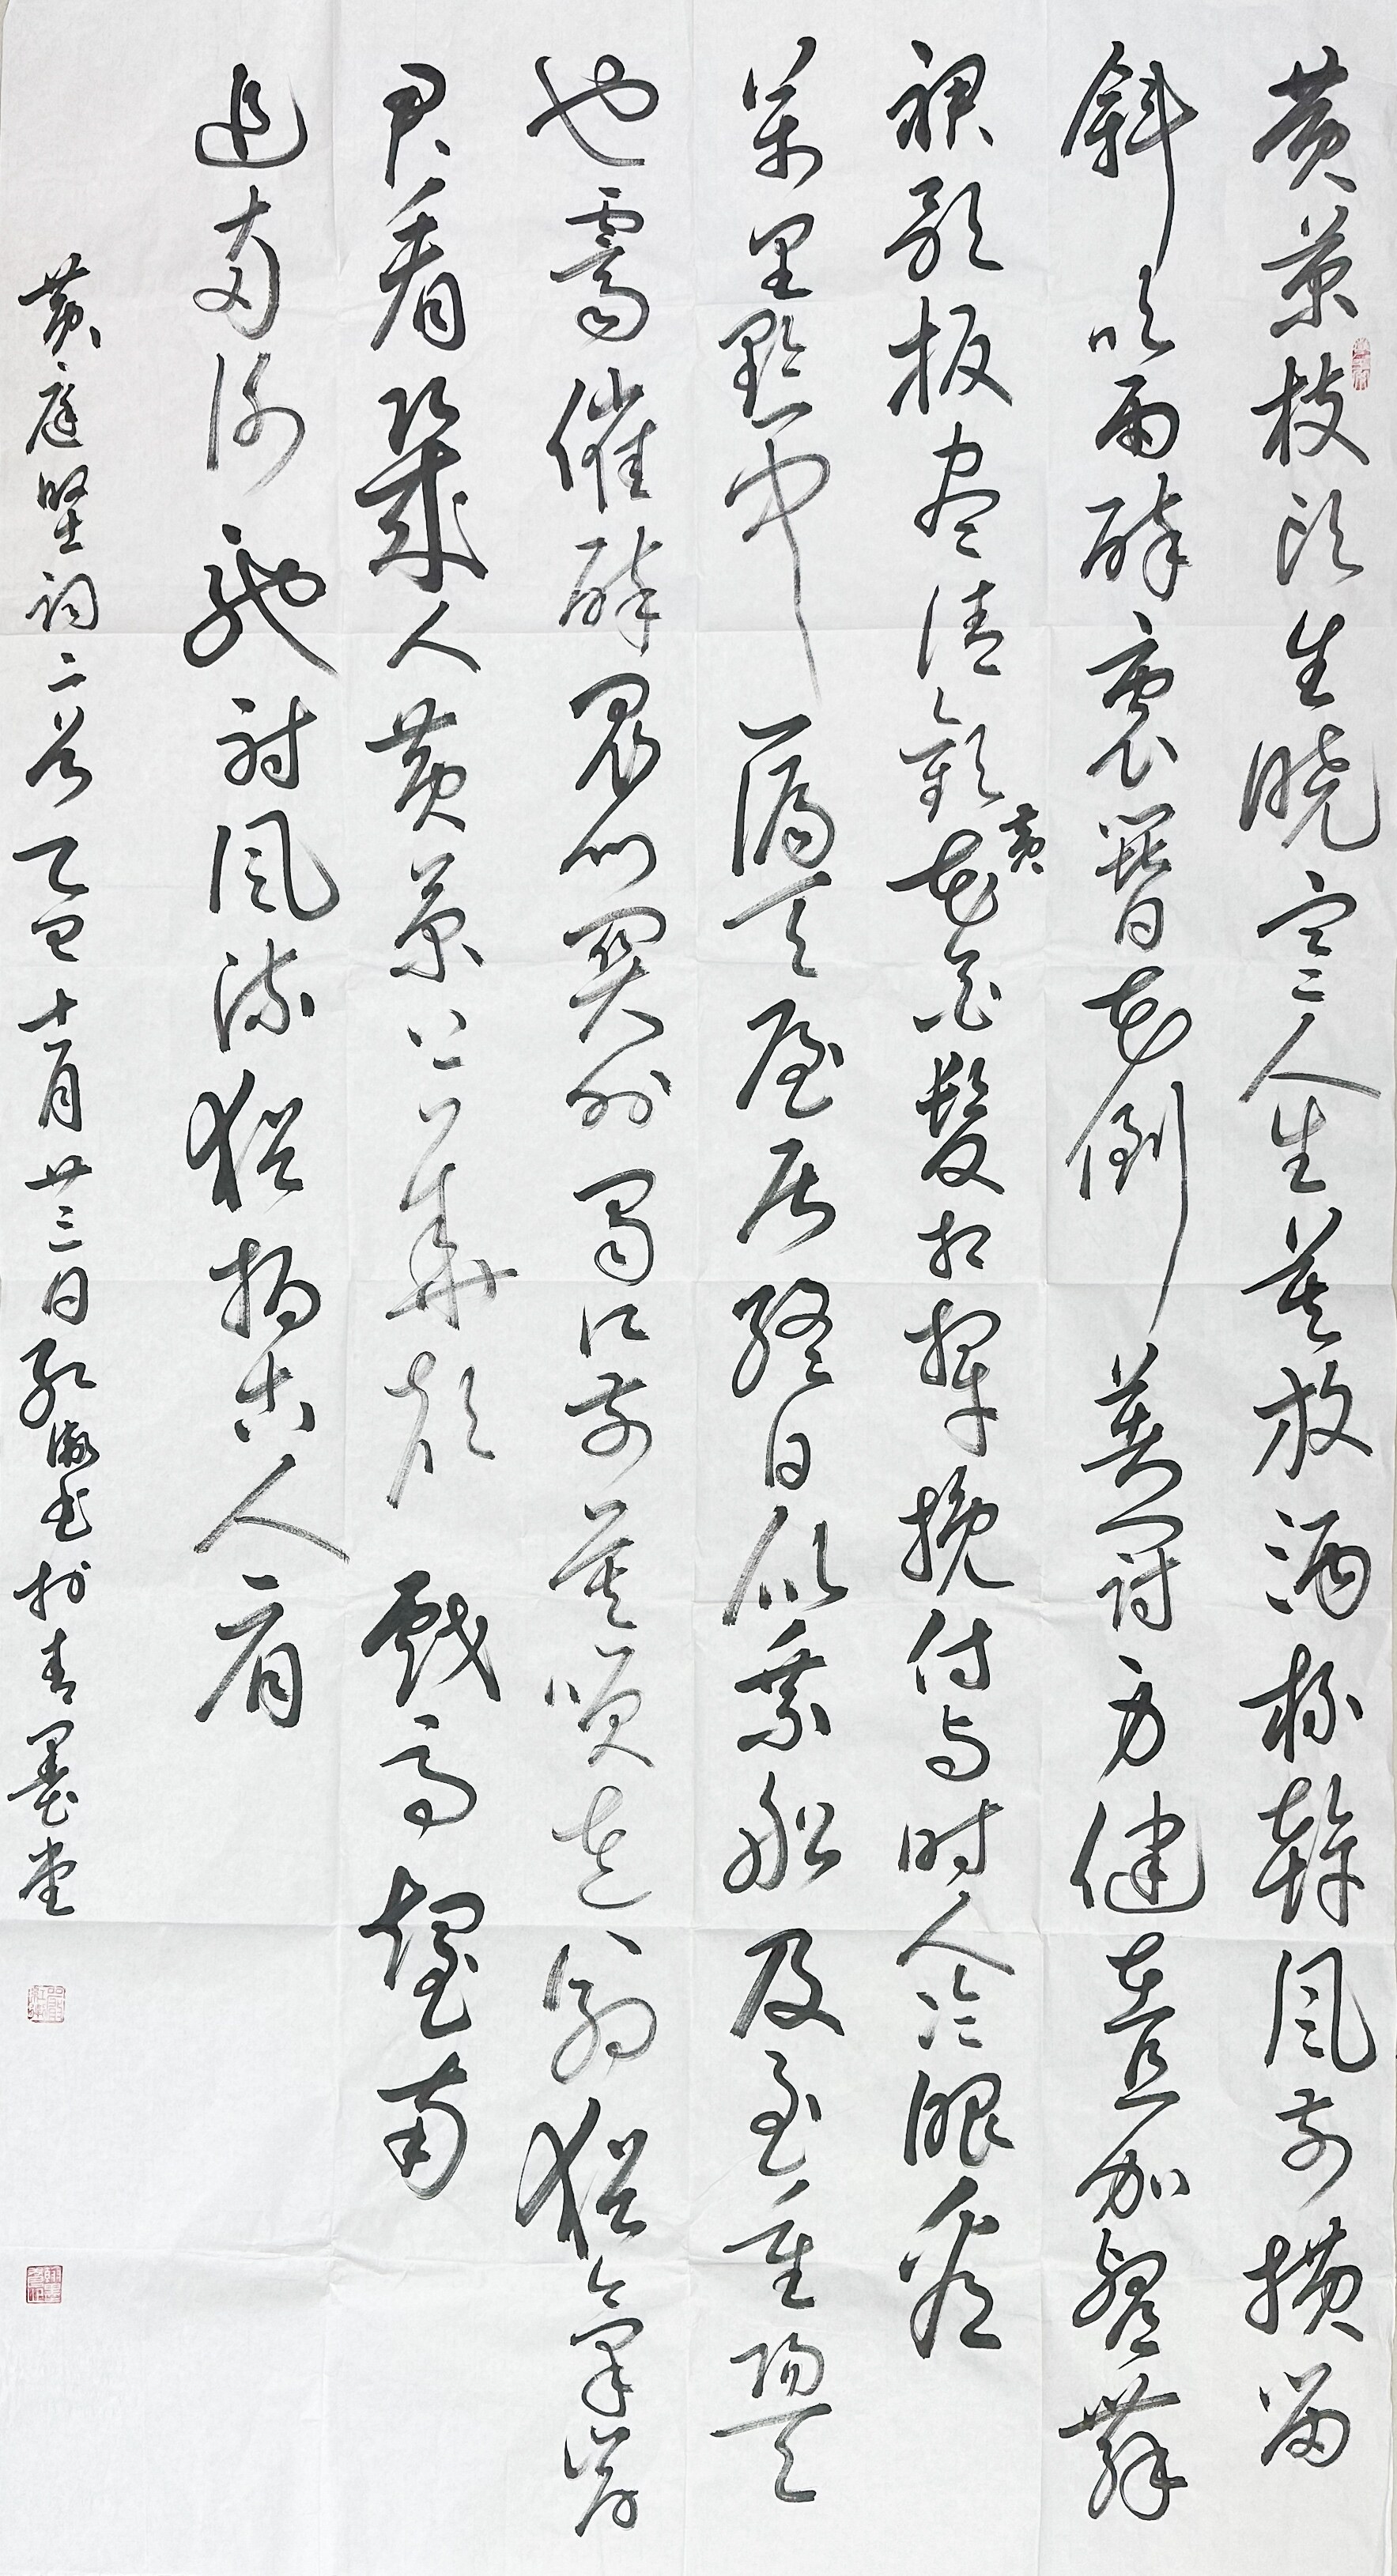 黄菊枝头生晓寒人生莫放酒杯幹风前横笛
斜吹雨醉裏簪花倒著冠身健在且加餐舞
裙歌板尽清歡黄花白髮相牽挽付与时人冷眼看
萬里黔中一漏天屋居終日似乘船及至重陽天
也霽催醉鬼门關外蜀江前莫笑老翁猶氣岸
君看幾人黄菊上華顛戲馬臺南
追两谢驰射风流猶拍古人肩
黄庭堅词二首乙巳十一月廿三日书於青墨堂